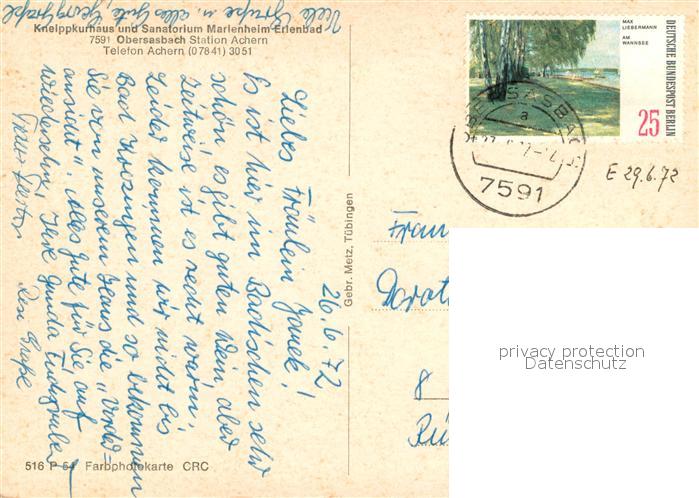 Viele Grüße u. alles Gute,
Kneippkurhaus und Sanatorium Marienheim-Erlenbad
7591 Obersasbach Station Achern
Telefon Achern (07841) 3051
26.6.72
Liebes Fräulein Janek!
Es ist hier im Badischen sehr
schön es gibt guten Wein aber
zeitweise ist es recht warm.
Leider kommen wir nicht bis
Bad Krozingen und so bekommen
Sie von unserem Haus die "Vorder=
ansicht". Alles gute für Sie auf
wiedersehn, Ihre
Resi Große
Gebr. Metz, Tübingen
516 P 54 Farbphotokarte CRC
MAX
LIEBERMANN
AM
WANNSEE
DEUTSCHE BUNDESPOST BERLIN
25
OBERSASBACH
a
7591
E 29.6.72
Frau
Dorot
8
privacy protection
Datenschutz